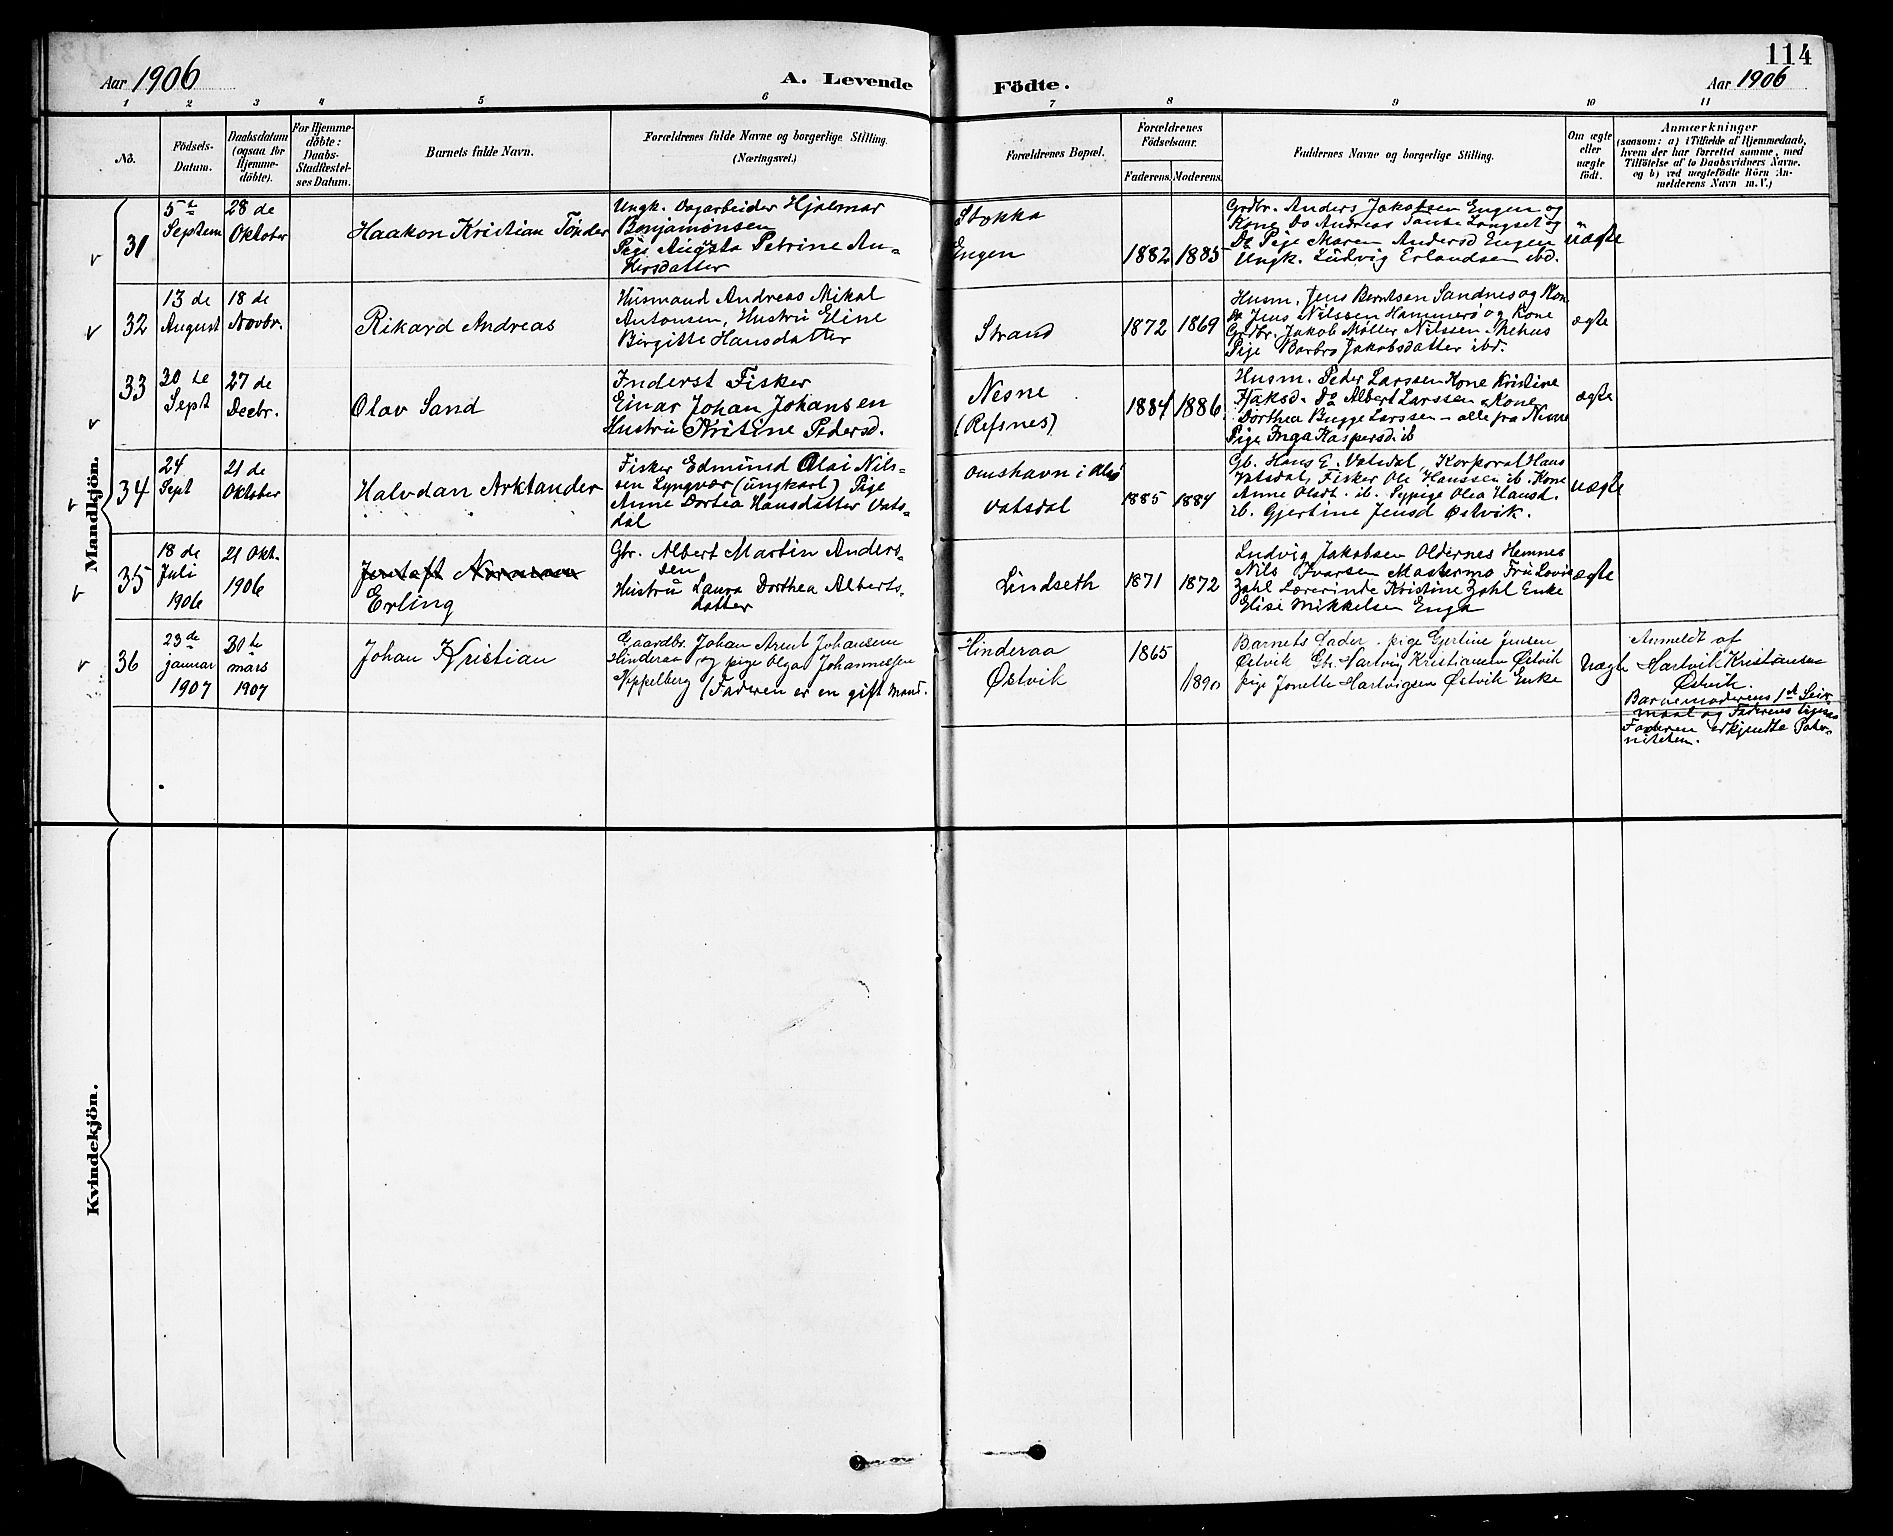 114
Aar 1906
A. Levende Födte.
Aar 1906
1 2 3 4 5 6 7 8 9 10 11
No.
Födsels-
Datum.
Daabsdatum
(ogsaa for
Hjemme-
döbte).
For Hjemme-
döbte:
Daabs-
Stadfæstel-
ses Datum.
Barnets fulde Navn.
Forældrenes fulde Navne og borgerlige Stilling.
(Næringsvei.)
Forældrenes Bopæl.
Forældrenes
Födselsaar.
Faderens. Moderens.
Faddernes Navne og borgerlige Stilling.
Om ægte
eller
uægte
födt.
Anmærkninger
(saasom: a) i Tilfælde af Hjemmedaab,
hvem der har forrettet samme, med
Tilföielse af to Daabsvidners Navne.
og b) ved uægtefödte Börn An-
melderens Navn m. V.)
Mandkjön.
31
5te
Septem
28 de
Oktober
Haakon Kristian Tønder
Ungk. Dagarbeider Hjalmar
Benjaminsen
Pige Augusta Petrine An-
dersdatter
Stokka
Engen
1882 1885
Grdbr. Anders Jakobsen Engen og
Kone Do Andreas Tønder Langset og
Do Pige Maren Andersd Engen
Ungk. Ludvig Erlandsen ibd.
Uægte
32
13 de
August
18 de
Novbr.
Rikard Andreas
Husmand Andreas Mikal
Antonsen, Hustru Eline
Birgitte Hansdatter
Strand
1872 1869
Husm. Jens Berntsen Sandnes og Kone
Do Jens Nilssen Hammerø og Kone
Grdbr. Jakob Møller Nilssen
Pige Barbro Jakobsdatter ibd.
ægte
33
30 te
Sept
27 de
Decbr.
Olav Sand
Inderst Fisker
Einar Johan Johansen
Hustru Kristine Pedersd.
Nesne
(Refsnes)
1884 1886
Husm. Peder Larssen Kone Kristine
Isaksd. Do Albert Larssen Kone
Dorthea Bugge Larssen – alle fra Nesne
Pige Inga Kaspersd. ib
ægte
34
24
Sept
21 de
Oktober
Halvdan Arktander
Fisker Edmund Olai Nils-
sen Lyngvær (ungkarl) Pige
Anne Dortea Hansdatter Vats-
dal
Vatsdal
1885 1884
Gb. Hans E. Vatsdal, Korporal Hans
Vatsdal, Fisker Ole Hanssen ib. Kone
Anne Olsdt. ib. Sypige Olea Hansd.
ib. Gjertine Jensd Østvik.
Uægte
35
18 de
Juli
1906
21 Okt.
1906
Erling
Gbr. Albert Martin Anders-
sen
Hustru Laura Dorthea Alberts-
datter
Lindseth
1871 1872
Ludvig Jakobsen Oldernes Hemnes
Nils Ivarsen Mastermo Frü Lovise
Zahl Lærerinde Kristine Zahl Enke
Elise Mikkelsen Enga
ægte
36
23de
januar
1907
30te
mars
1907
Johan Kristian
Gaardbr. Johan Arnt Johansen
Hinderaa og pige Olga Johannessen
Nippelberg (Faderen er en gift mand.
Hinderaa
Østvik
1865
1890
Barnets Fader. pige Gjertine Jensen
Østvik Gb. Hartvig Kristiansen Østvik
pige Jonette Hartvigsen Østvik Enke
Uægte
Anmeldt af
Hartvik Kristiansen
Østvik.
Barnemoderens 1ste Leier-
maal og Faderens
Faderen erkjendte Pater-
niteten.
Kvindekjön.